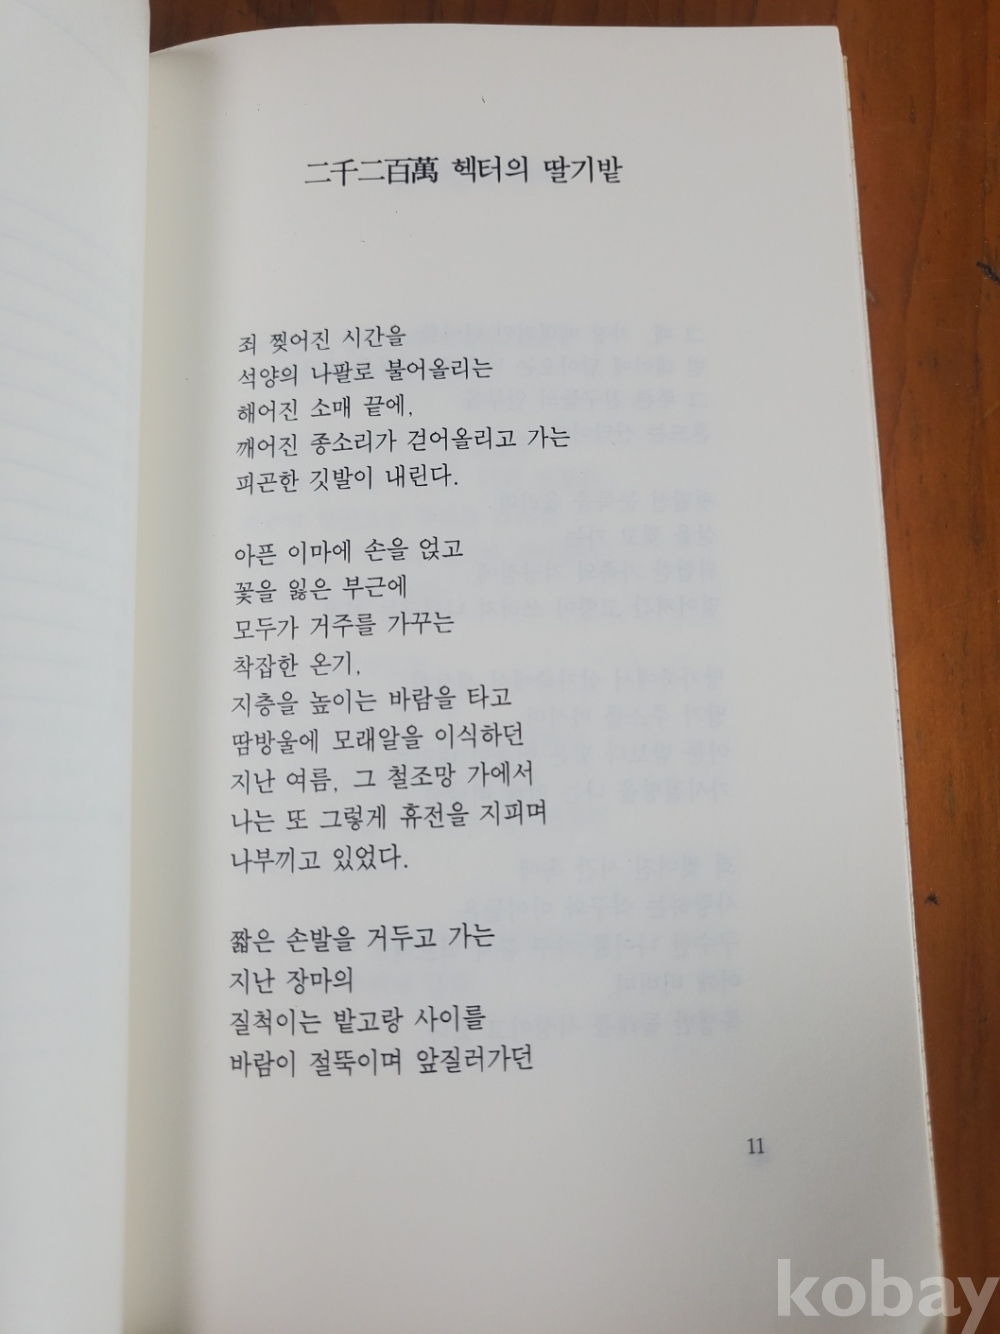 二千二百萬 헥터의 딸기밭
죄 찢어진 시간을
석양의 나팔로 불어올리는
해어진 소매 끝에,
깨어진 종소리가 걷어올리고 가는
피곤한 깃발이 내린다.
아픈 이마에 손을 얹고
꽃을 잃은 부근에
모두가 거주를 가꾸는
착잡한 온기,
지층을 높이는 바람을 타고
땀방울에 모래알을 이식하던
지난 여름, 그 철조망 가에서
나는 또 그렇게 휴전을 지피며
나부끼고 있었다.
짧은 손발을 거두고 가는
지난 장마의
질척이는 밭고랑 사이를
바람이 절뚝이며 앞질러가던
11
kobay